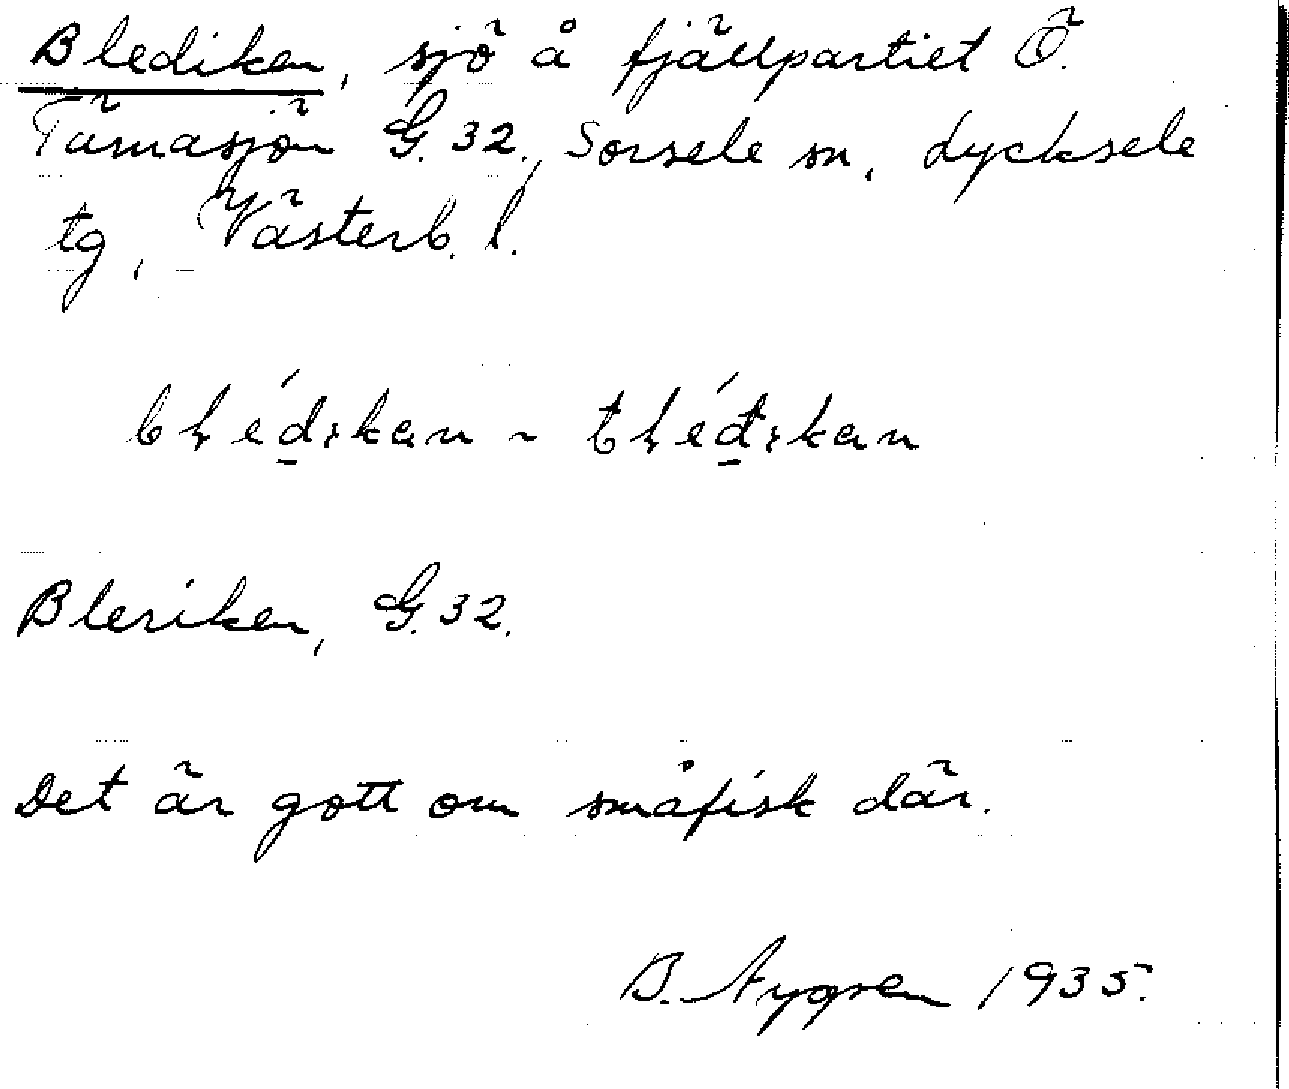 Blediken, sjö å fjällpartiet Ö.
Tärnasjön G.32., Sorsele sn, Lycksele
tg, Västerb. l.
Bleriken, G.32.
Det är gott om småfisk där.
B. Nygren 1935.